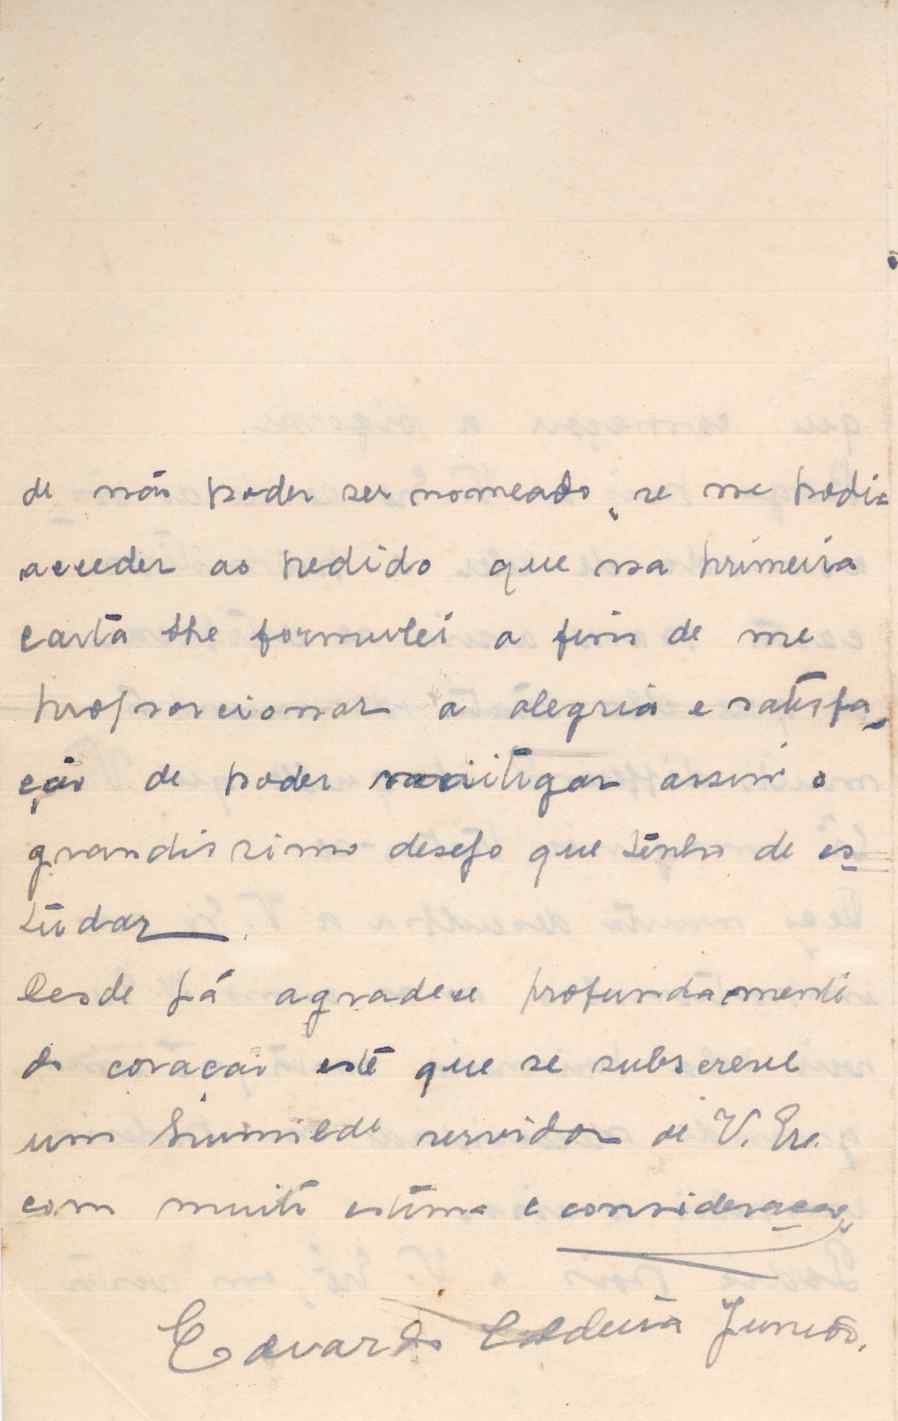 de não poder ser nomeado, se me podia
acceder ao pedido que na primeira
carta lhe formulei a fim de me
proporcionar a alegria e satisfa-
ção de poder mitigar assim o
grandissimo desejo que tenho de es-
tudar.
Desde já agradece profundamente
do coração este que se subscreve
um humilde servidor de V. Ex.
com muita estima e consideração
Eduardo Caldeira Junior.